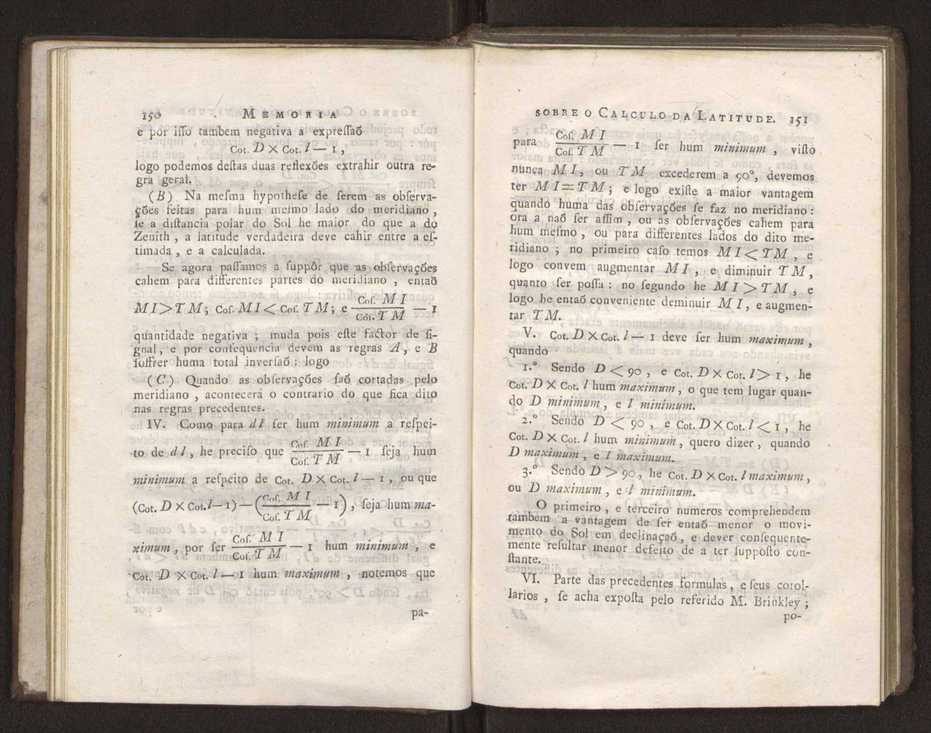 150 MEMORIA
e por iſſo tambem negativa a expreſſaõ
Cot. D × Cot. l — 1 ,
logo podemos deſtas duas reflexões extrahir outra re-
gra geral.
(B) Na meſma hypotheſe de ſerem as obſerva-
ções feitas para hum meſmo lado do meridiano ,
ſe a diſtancia polar do Sol he maior do que a do
Zenith , a latitude verdadeira deve cahir entre a eſ-
timada , e a calculada.
Se agora paſſamos a ſuppôr que as obſervações
cahem para differentes partes do meridiano , entaõ
MI>TM; Coſ. MI < Coſ. TM; e Coſ. MI / Coſ. TM — 1
quantidade negativa ; muda pois eſte factor de ſi-
gnal, e por conſequencia devem as regras A, e B
ſoffrer huma total inverſaõ : logo
(C) Quando as obſervações ſaõ cortadas pelo
meridiano , acontecerá o contrario do que fica dito
nas regras precedentes.
IV. Como para dl ſer hum minimum a reſpei-
to de dl , he preciſo que Coſ. MI / Coſ. TM — 1 ſeja hum
minimum a reſpeito de Cot. D × Cot. l — 1 , ou que
(Cot. D × Cot. l—1) — (Coſ. MI / Coſ. TM — 1) , ſeja hum ma-
ximum , por ſer Coſ. MI / Coſ. TM — 1 hum minimum , e
Cot. D × Cot. l — 1 hum maximum , notemos que
pa-
SOBRE O CALCULO DA LATITUDE. 151
para Coſ. MI / Coſ. TM — 1 ſer hum minimum , viſto
nunca MI, ou TM excederem a 90°, devemos
ter MI=TM; e logo exiſte a maior vantagem
quando huma das obſervações ſe faz no meridiano :
ora a naõ ſer aſſim , ou as obſervações cahem para
hum meſmo , ou para differentes lados do dito me-
ridiano ; no primeiro caſo temos MI<TM , e
logo convem augmentar MI , e diminuir TM,
quanto ſer poſſa : no ſegundo he MI>TM , e
logo he entaõ conveniente deminuir MI, e augmen-
tar TM.
V. Cot. D × Cot. l — 1 deve ſer hum maximum ,
quando
1.° Sendo D < 90 , e Cot. D × Cot. l > 1 , he
Cot. D × Cot. l hum maximum , o que tem lugar quan-
do D minimum , e l minimum.
2.° Sendo D < 90 , e Cot. D × Cot. l < 1 , he
Cot. D × Cot. l hum minimum , quero dizer , quando
D maximum , e l maximum.
3.° Sendo D > 90, he Cot. D × Cot. l maximum ,
ou D maximum , e l minimum.
O primeiro , e terceiro numeros comprehendem
tambem a vantagem de ſer entaõ menor o movi-
mento do Sol em declinaçaõ , e dever conſequente-
mente reſultar menor defeito de a ter ſuppoſto con-
ſtante.
VI. Parte das precedentes formulas , e ſeus corol-
larios , ſe acha expoſta pelo referido M. Brinkley ;
po-